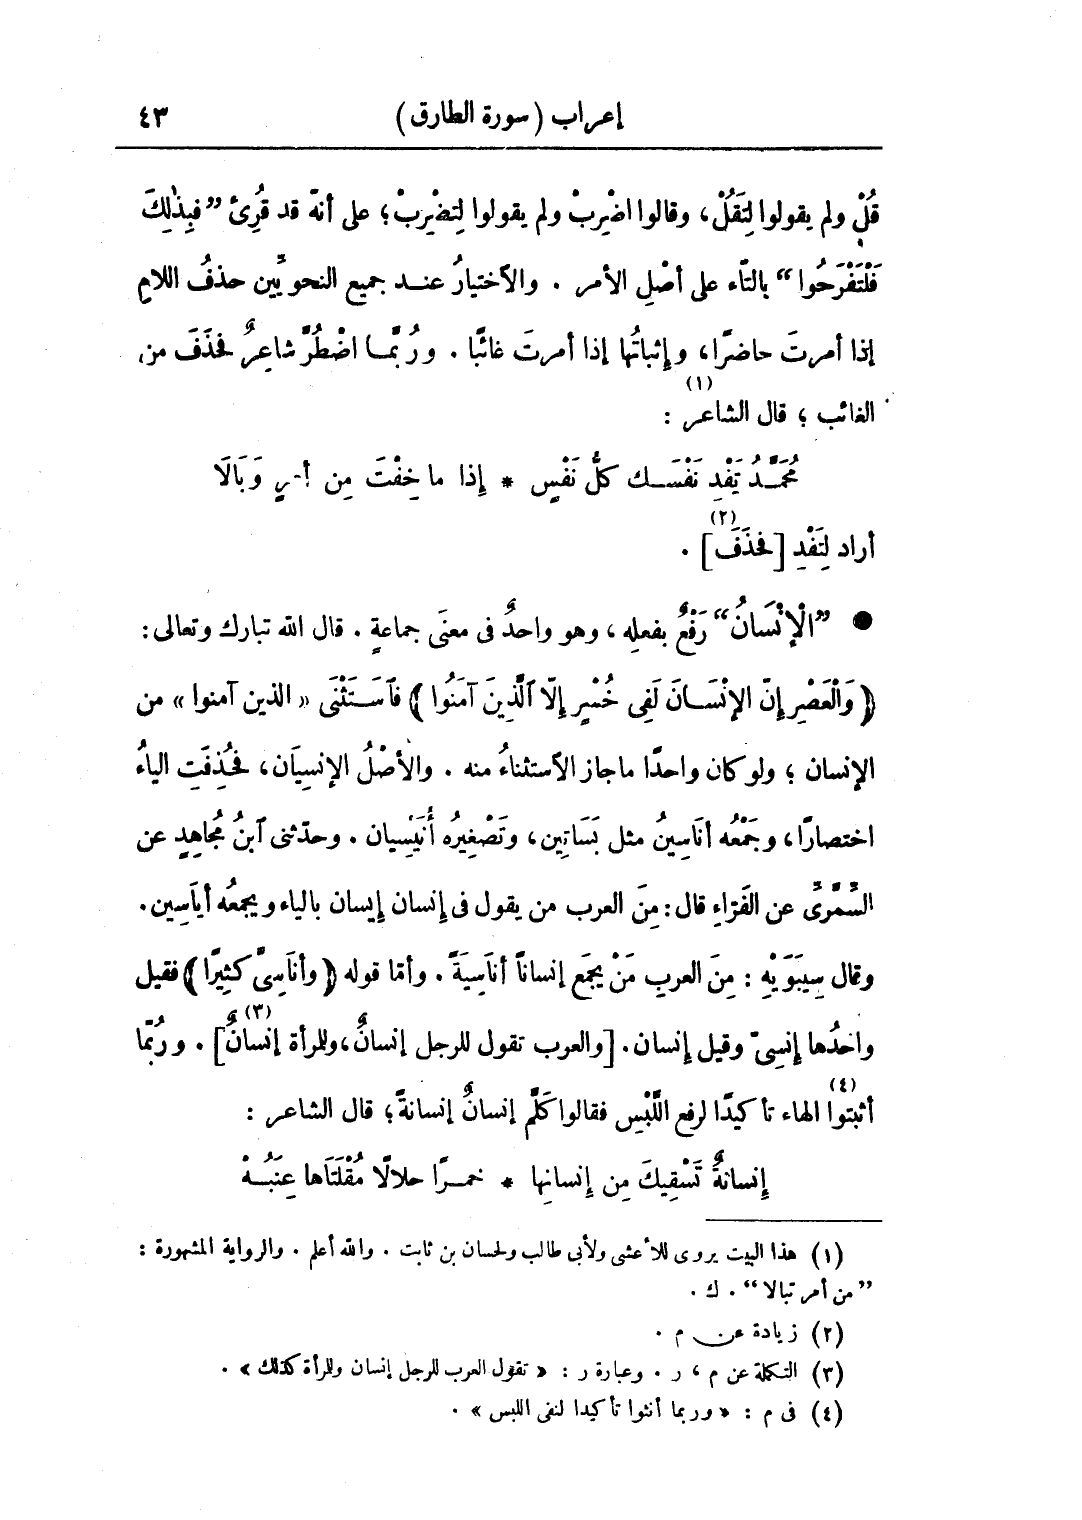 إعراب (سورة الطارق) ٤٣
قُلْ ولم يقولوا لِتَقُلْ، وقالوا اضْرِبْ ولم يقولوا لِتضْرِبْ؛ على أنه قد قُرِئ ”فَبِذٰلِكَ
فَلْتَفْرَحُوا“ بالتّاء على أصْلِ الأمر . والاختيارُ عنـد جميع النحويِّين حذفُ اللامِ
إذا أمرتَ حاضرًا، وإثباتُها إذا أمرتَ غائبًا . ورُبّمـا اضْطُرَّ شاعرٌ فحَذَفَ من
الغائب ؛ قال الشاعر (١) :
مُحَمَّـدُ تَفْدِ نَفْسَـك كلُّ نَفْسٍ * إذا ما خِفْتَ مِن أمرٍ وَبَالَا
أراد لِتَفْدِ [فحَذَفَ] (٢) .
● ”الْإِنْسَانُ“ رَفْعٌ بفعلِه ، وهو واحدٌ فى معنَى جماعةٍ . قال الله تبارك وتعالى :
﴿وَالْعَصْرِ إنّ الإنْسَـانَ لَفِى خُسْرٍ إلّا الَّذِينَ آمَنُوا﴾ فاسَتَثْنَى « الذين آمنوا » من
الإنسان ؛ ولو كان واحدًا ما جاز الاستثناءُ منه . والأصْلُ الإنسِيَان، فحُذِفَتِ الياءُ
اختصارًا، وجَمْعُه أنَاسِينُ مثل بَسَاتِين، وتَصْغِيرُه أُنَيْسِيان . وحدّثنى ابنُ مُجاهِدٍ عن
السِّمَّرِىِّ عن الفَرّاءِ قال : مِنَ العرب من يقول فى إنسان إيسان بالياء ويجمعُه أياَسِين.
وقال سِيبَوَيْهِ : مِنَ العربِ مَنْ يجمَع إنساناً أناَسِيَةً . وأمّا قوله ﴿وأنَاسِىَّ كَثِيرًا﴾ فقيل
واحدُها إنسِىّ وقيل إنسان. [والعرب تقول للرجل إنسانٌ، وللمرأة إنسانٌ] (٣) . ورُبّما
أثبتوا (٤) الهاء تأكيدًا لرفع اللَّبْسِ فقالوا كَلَّمَ إنسانٌ إنسانةً ؛ قال الشاعر :
إنسانةٌ تَسْقِيكَ مِن إنسانِها * خمـرًا حلالًا مُقْلَتَاها عِنَبُـهْ
(١) هذا البيت يروى للأعشى ولأبى طالب ولحسان بن ثابت . والله أعلم . والرواية المشهورة :
”من أمر تبالا“ . ك .
(٢) زيادة عن م .
(٣) التكملة عن م ، ر . وعبارة ر : « تقول العرب للرجل إنسان وللمرأة كذلك » .
(٤) فى م : « وربما أنثوا تأكيدا لنفى اللبس » .